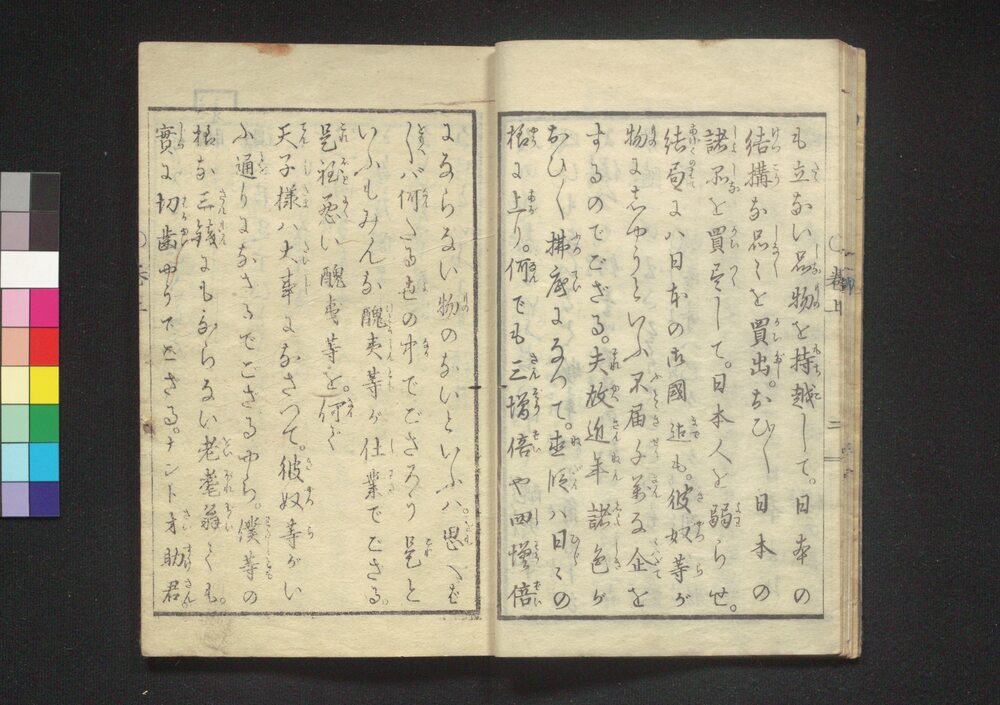 も立ない品物を持越して。日本の
結構な品々を買出。おひ〳〵日本の
諸品を買尽して。日本人を弱らせ。
結局ハ日本の御國迄も。彼奴等が
物にしやうといふ不届千萬な企を
するのでござる。夫故近年諸色が
おひ〳〵拂底になつて。直段ハ日々の
様に上り。何でも三増倍や四増倍
にならない物のないといふハ。思へば
何たる世の中でござろう是と
いふもみんな醜夷等が仕業でござる。
是程悪い醜夷等を。何ぞ
天子様ハ大事になさつて。彼奴等がい
ふ通りになさるでござるやら。僕等の
様な三銭にもならない老耄翁々も。
實に切歯やりでござる。ナント才助君